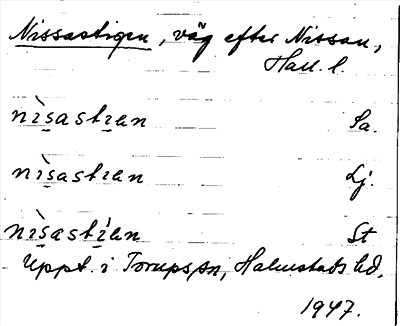 Nissastigen, väg efter Nissan,
Hall. l.
nìsastian Sa.
nìsastian Lj.
nìsastían St
Uppt. i Torups sn, Halmstads hd.
1947.